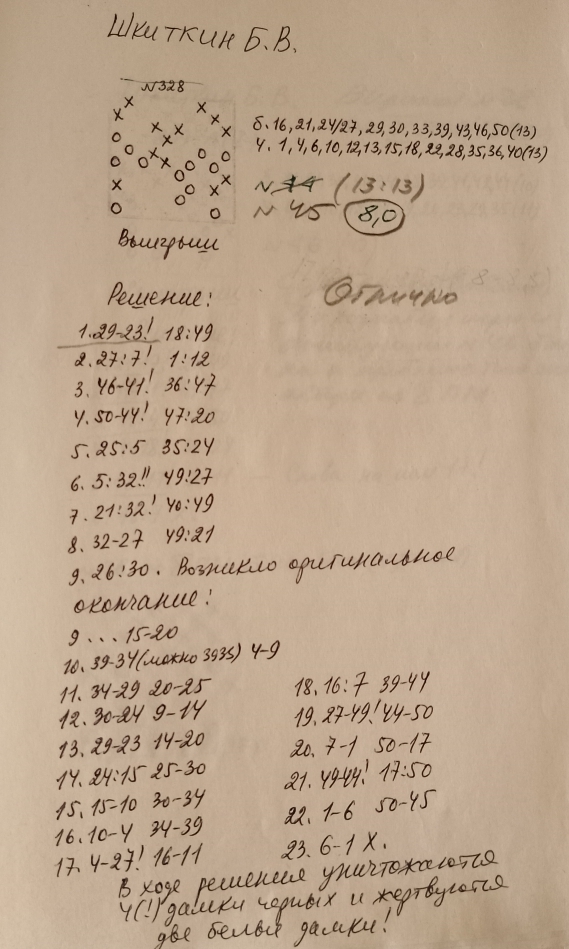 Шкиткин Б.В.
№328
б. 16,21,24/27,29,30,33,39,43,46,50(13)
ч. 1,4,6,10,12,13,15,18,22,28,35,36,40(13)
№ 44 (13:13)
№ 45 8,0
Выигрыш
Решение:
Отлично
1. 29-23! 18:49
2. 27:7! 1:12
3. 46-41! 36:47
4. 50-44! 47:20
5. 25:5 35:24
6. 5:32!! 49:27
7. 21:32! 40:49
8. 32-27 49:21
9. 26:30. Возникло оригинальное
окончание:
9 ... 15-20
10. 39-34 (можно 3935) 4-9
11. 34-29 20-25
12. 30-24 9-14
13. 29-23 14-20
14. 24:15 25-30
15. 15-10 30-34
16. 10-4 34-39
17. 4-27! 16-11
18. 16:7 39-44
19. 27-49! 44-50
20. 7-1 50-17
21. 49-44! 17:50
22. 1-6 50-45
23. 6-1 X.
В ходе решения уничтожаются
4(!) дамки черных и жертвуются
две белые дамки!